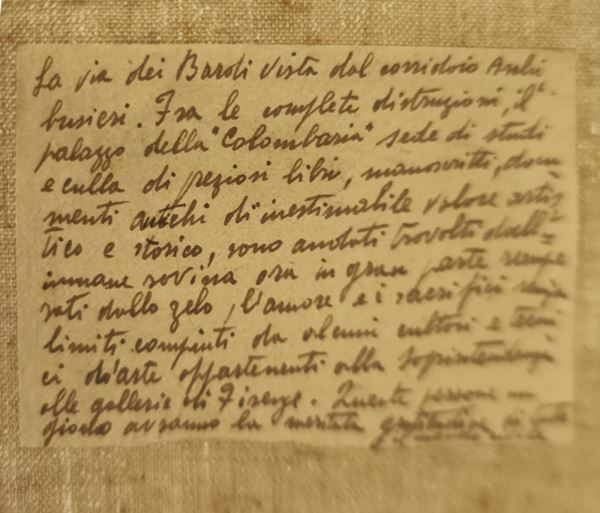 La via dei Bardi vista dal corridoio Archi
busieri. Fra le complete distruzioni, il
palazzo della "Colombaria" sede di studi
e culla di preziosi libri, manoscritti, docu
menti antichi di inestimabile valore artis
tico e storico, sono andati travolti dall'
immane rovina ora in gran parte recupe
rati dallo zelo, l'amore e i sacrifici senza
limiti compiuti da alcuni cultori e tecni
ci d'arte appartenenti alla Soprintendenza
alle gallerie di Firenze. Queste persone un
giorno avranno la meritata gratitudine